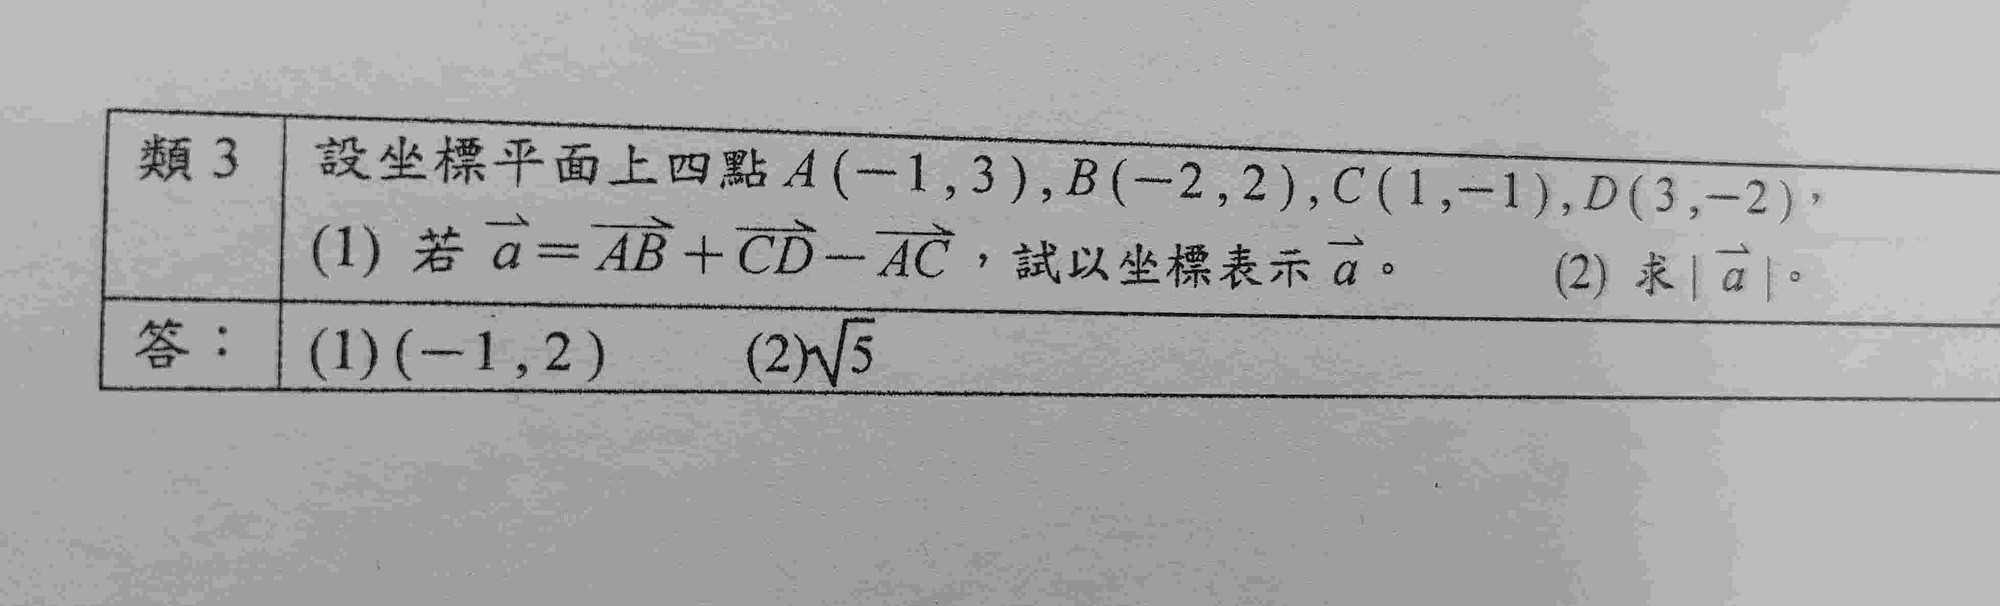 類 3 設坐標平面上四點 A(−1,3),B(−2,2),C(1,−1),D(3,−2),
(1) 若 $\vec{a}=\overrightarrow{AB}+\overrightarrow{CD}-\overrightarrow{AC}$,試以坐標表示 $\vec{a}$。 (2) 求|$\vec{a}$|。
答: (1)(−1,2) (2)$\sqrt{5}$